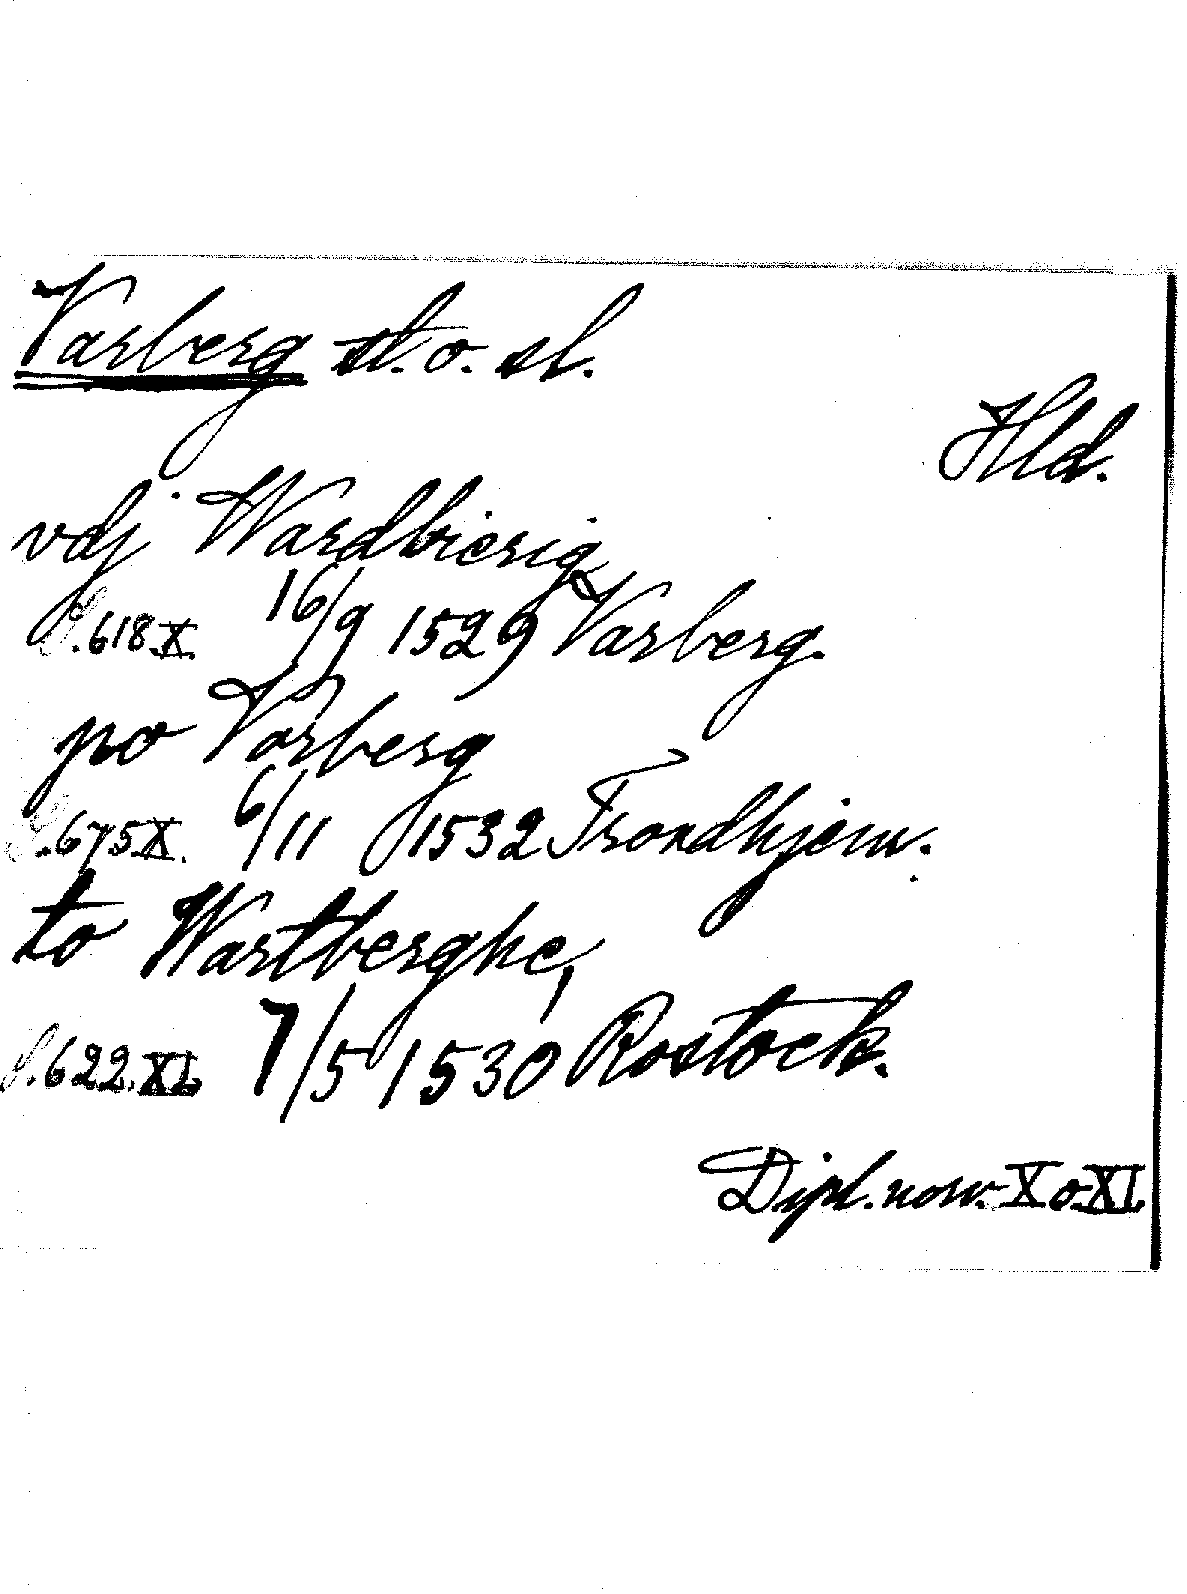 Varberg st. o. sl.
Hld.
vdj Wardbierig
S. 618 X. 16/9 1529 Varberg.
po Vorberg
S. 675 X. 6/11 1532 Trondhjem.
to Wartberghe,
S. 622. XI. 7/5 1530 Rostock.
Dipl. norv. X o. XI.